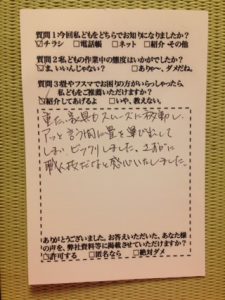 質問1:今回私どもをどちらでお知りになりましたか?
☑チラシ □電話帳 □ネット □紹介 その他
質問2:私どもの作業中の態度はいかがでしたか?
☑ま、いいんじゃない? □ありゃ〜、ダメだね。
質問3:畳やフスマでお困りの方がいらっしゃったら、
私どもをご推薦いただけますか?
☑紹介してあげるよ □いや、教えない。
重た、家具もスムーズに移動し、
アッと言う間に畳を運び出して
しまいビックリしました。まさに
職人技だなと感心いたしました。
ありがとうございました。お答えいただいた、あなた様
の声を、弊社資料等に掲載させていただけますか?
☑許可する □匿名なら □絶対ダメ